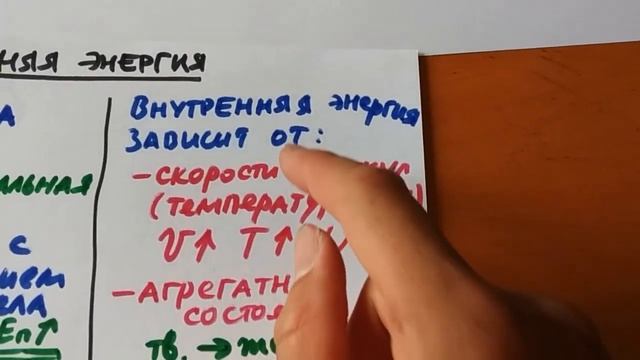 НАЯ ЭНЕРГИЯ
А
ЛЬНАЯ
С
ИЕМ
ЕЛА
Еп↑
ВНУТРЕННЯЯ ЭНЕРГИЯ
ЗАВИСИТ ОТ:
-СКОРОСТИ
(ТЕМПЕРАТУР
V↑ T↑
-АГРЕГАТН
СОСТОЯ
ТВ. → Ж